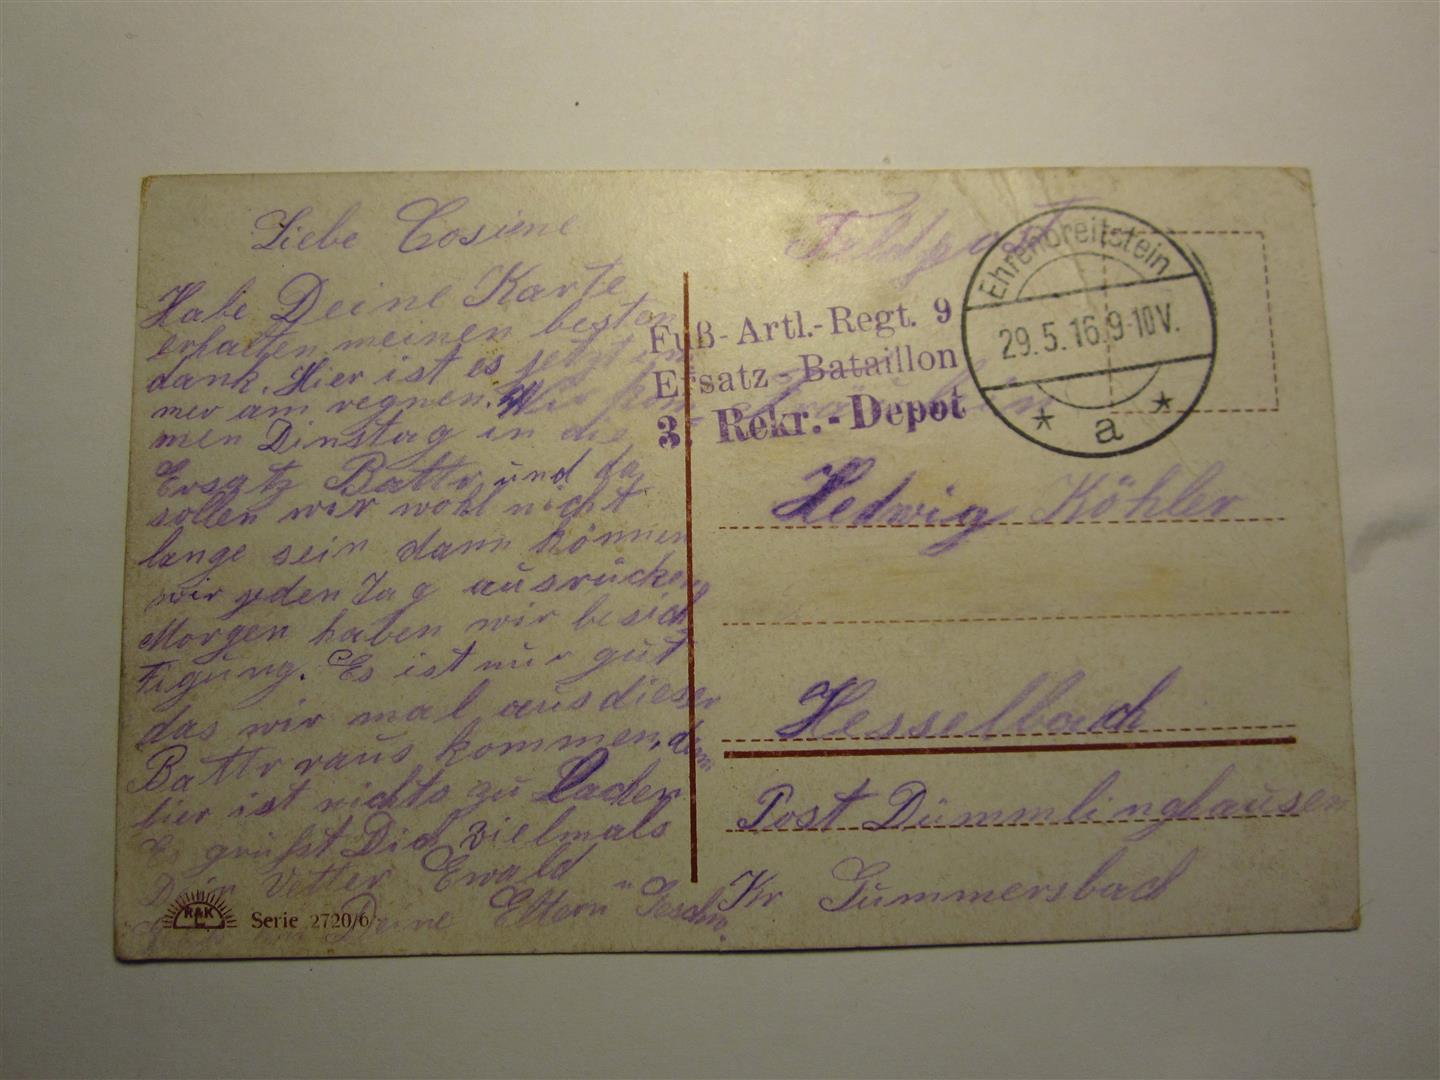 Liebe Cosiene
Habe Deine Karte
erhalten meinen besten
dank. Hier ist es jetzt im
mer am regnen. Wir kom
men Dinstag in die
Ersatz Battr und da
sollen wir wohl nicht
lange sein dann können
wir jeden Tag ausrücken
Morgen haben wir besich
tigung. Es ist nur gut
das wir mal aus dieser
Battr raus kommen, den
hier ist nichts zu Lachen
Es grüßt Dich vielmals
Dein Vetter Ewald
Deine Eltern u Geschw.
R&K
L
Serie 2720/6
Feldpost
Fuß-Artl.-Regt. 9
Ersatz-Bataillon
3. Rekr.-Depot
Ehrenbreitstein
29.5.16.9-10V.
* a *
Fräulein
Hedwig Köhler
Hesselbach
Post Dümmlinghausen
Kr Gummersbach